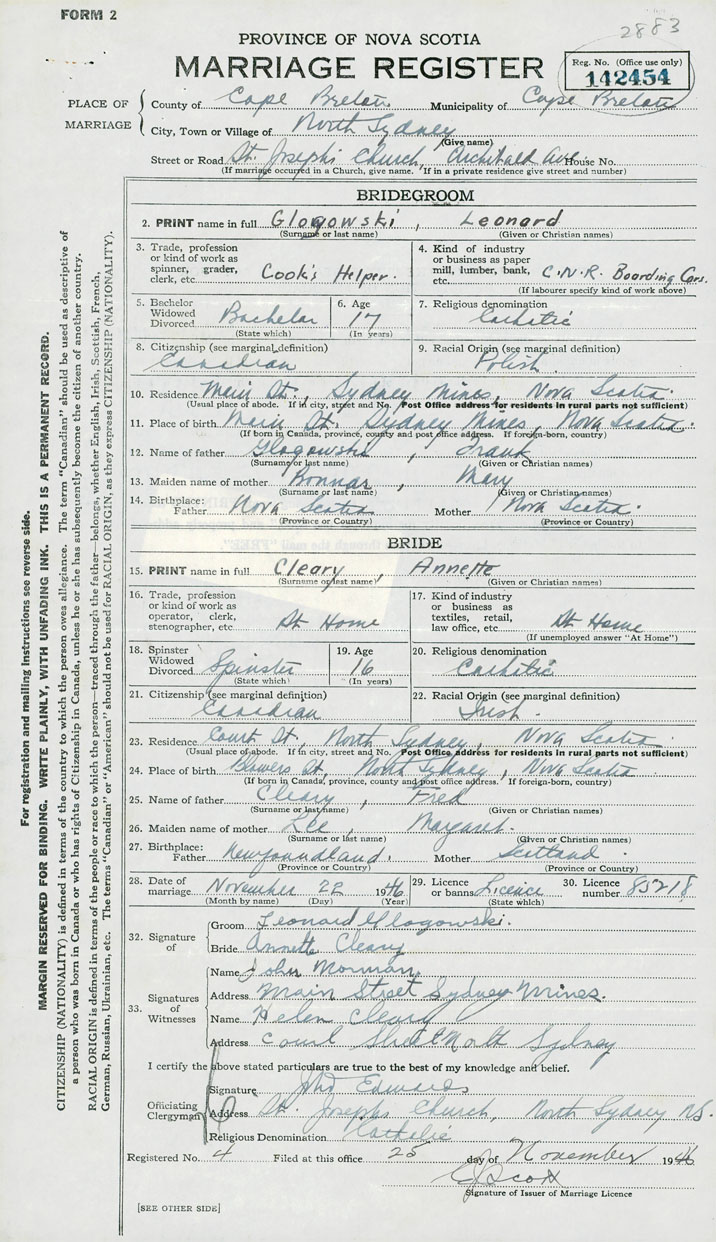 FORM 2
2883
PROVINCE OF NOVA SCOTIA
MARRIAGE REGISTER
Reg. No. (Office use only)
142454
PLACE OF MARRIAGE
County of Cape Breton Municipality of Cape Breton
City, Town or Village of North Sydney
(Give name)
Street or Road St. Joseph's Church, Archibald Ave. House No.
(If marriage occurred in a Church, give name. If in a private residence give street and number)
BRIDEGROOM
2. PRINT name in full Glogowski, Leonard
(Surname or last name) (Given or Christian names)
3. Trade, profession
or kind of work as
spinner, grader,
clerk, etc. Cook's Helper.
4. Kind of industry
or business as paper
mill, lumber, bank,
etc. C.N.R. Boarding Cars.
(If labourer specify kind of work above)
5. Bachelor
Widowed
Divorced Bachelor
(State which)
6. Age
17
(In years)
7. Religious denomination
Catholic
8. Citizenship (see marginal definition)
Canadian
9. Racial Origin (see marginal definition)
Polish
10. Residence Main St., Sydney Mines, Nova Scotia
(Usual place of abode. If in city, street and No. Post Office address for residents in rural parts not sufficient)
11. Place of birth Main St. Sydney Mines, Nova Scotia.
(If born in Canada, province, county and post office address. If foreign-born, country)
12. Name of father Glogowski, Frank
(Surname or last name) (Given or Christian names)
13. Maiden name of mother Bonnar, Mary
(Surname or last name) (Given or Christian names)
14. Birthplace:
Father Nova Scotia Mother Nova Scotia
(Province or Country) (Province or Country)
BRIDE
15. PRINT name in full Cleary, Annette
(Surname or last name) (Given or Christian names)
16. Trade, profession
or kind of work as
operator, clerk,
stenographer, etc. At Home
17. Kind of industry
or business as
textiles, retail,
law office, etc. At Home
(If unemployed answer "At Home")
18. Spinster
Widowed
Divorced Spinster
(State which)
19. Age
16
(In years)
20. Religious denomination
Catholic
21. Citizenship (see marginal definition)
Canadian
22. Racial Origin (see marginal definition)
Irish.
23. Residence Court St., North Sydney, Nova Scotia
(Usual place of abode. If in city, street and No. Post Office address for residents in rural parts not sufficient)
24. Place of birth Blowers St., North Sydney, Nova Scotia
(If born in Canada, province, county and post office address. If foreign-born, country)
25. Name of father Cleary, Fred
(Surname or last name) (Given or Christian names)
26. Maiden name of mother Lee, Margaret.
(Surname or last name) (Given or Christian names)
27. Birthplace:
Father Newfoundland. Mother Scotland
(Province or Country) (Province or Country)
28. Date of
marriage November 22 1946
(Month by name) (Day) (Year)
29. Licence
or banns Licence
(State which)
30. Licence
number 85218
32. Signature
of
Groom Leonard Glogowski.
Bride Annette Cleary
33. Signatures
of
Witnesses
Name John Morman,
Address Main Street Sydney Mines.
Name Helen Cleary
Address Court Street North Sydney
I certify the above stated particulars are true to the best of my knowledge and belief.
Officiating
Clergyman
Signature Edwards
Address St. Josephs Church, North Sydney N.S.
Religious Denomination Catholic
Registered No. 4 Filed at this office 25 day of November 1946
Signature of Issuer of Marriage Licence
[SEE OTHER SIDE]
For registration and mailing instructions see reverse side.
MARGIN RESERVED FOR BINDING. WRITE PLAINLY, WITH UNFADING INK. THIS IS A PERMANENT RECORD.
CITIZENSHIP (NATIONALITY) is defined in terms of the country to which the person owes allegiance. The term "Canadian" should be used as descriptive of
a person who was born in Canada or who has rights of Citizenship in Canada, unless he or she has subsequently become the citizen of another country.
RACIAL ORIGIN is defined in terms of the people or race to which the person—traced through the father—belongs, whether English, Irish, Scottish, French,
German, Russian, Ukrainian, etc. The terms "Canadian" or "American" should not be used for RACIAL ORIGIN, as they express CITIZENSHIP (NATIONALITY).